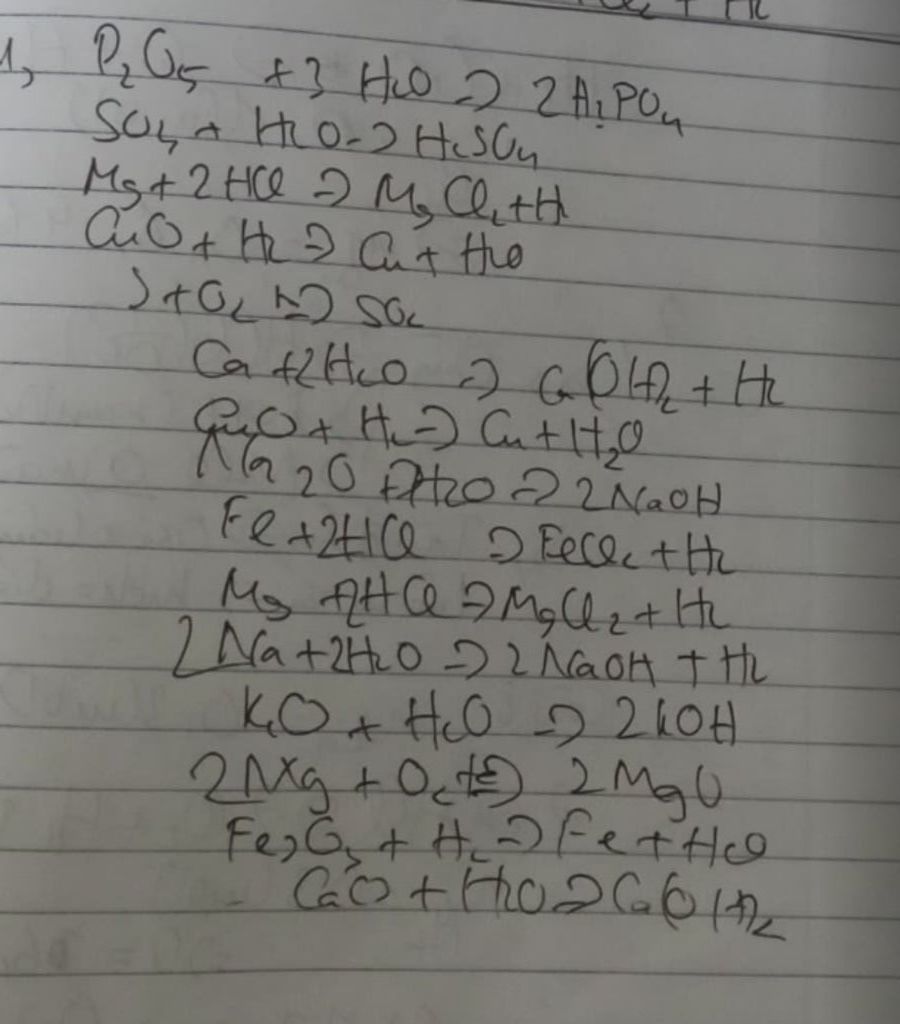 1, P₂O₅ + 3 H₂O ⇒ 2H₃PO₄
SO₃ + H₂O -> H₂SO₄
Mg + 2HCl ⇒ MgCl₂ + H
CuO + H₂ ⇒ Cu + H₂O
S + O₂ ⇒ SO₂
Ca + 2H₂O ⇒ Ca(OH)₂ + H₂
CuO + H₂ ⇒ Cu + H₂O
Na₂O + H₂O ⇒ 2NaOH
Fe + 2HCl ⇒ FeCl₂ + H₂
Mg + 2HCl ⇒ MgCl₂ + H₂
2Na + 2H₂O ⇒ 2NaOH + H₂
K₂O + H₂O ⇒ 2KOH
2Mg + O₂ ⇒ 2MgO
Fe₂O₃ + H₂ ⇒ Fe + H₂O
CaO + H₂O ⇒ Ca(OH)₂